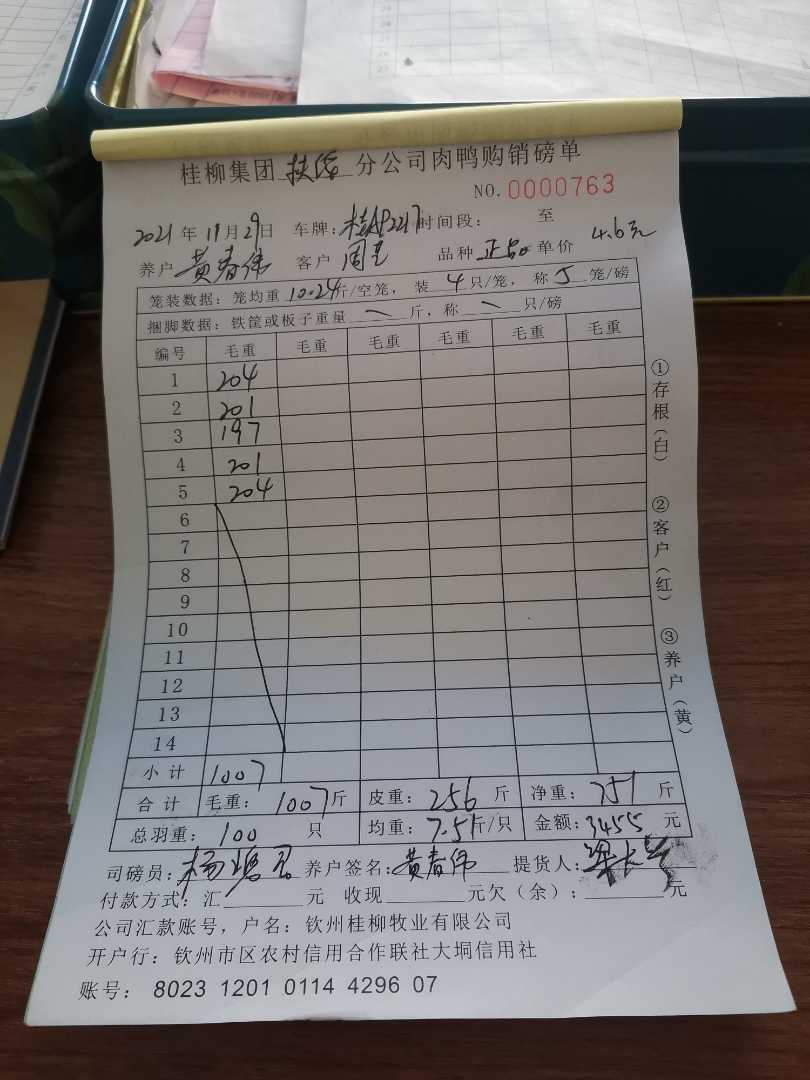 桂柳集团 扶绥 分公司肉鸭购销磅单
NO. 0000763
2021年11月29日 车牌: 桂AP2217 时间段: 至
养户 黄春伟 客户 周 品种 正品 单价 4.6元
笼装数据: 笼均重 10.24斤/空笼, 装 4 只/笼, 称 5 笼/磅
捆脚数据: 铁筐或板子重量 \ 斤, 称 \ 只/磅
编号 毛重 毛重 毛重 毛重 毛重 毛重
1 204
2 201
3 197
4 201
5 204
6
7
8
9
10
11
12
13
14
小计 1007
合计 毛重: 1007斤 皮重: 256 斤 净重: 751 斤
总羽重: 100 只 均重: 7.51斤/只 金额: 3455 元
司磅员: 杨 养户签名: 黄春伟 提货人:
付款方式: 汇 元 收现 元欠(余): 元
公司汇款账号, 户名: 钦州桂柳牧业有限公司
开户行: 钦州市区农村信用合作联社大垌信用社
账号: 8023 1201 0114 4296 07
①存根(白)
②客户(红)
③养户(黄)